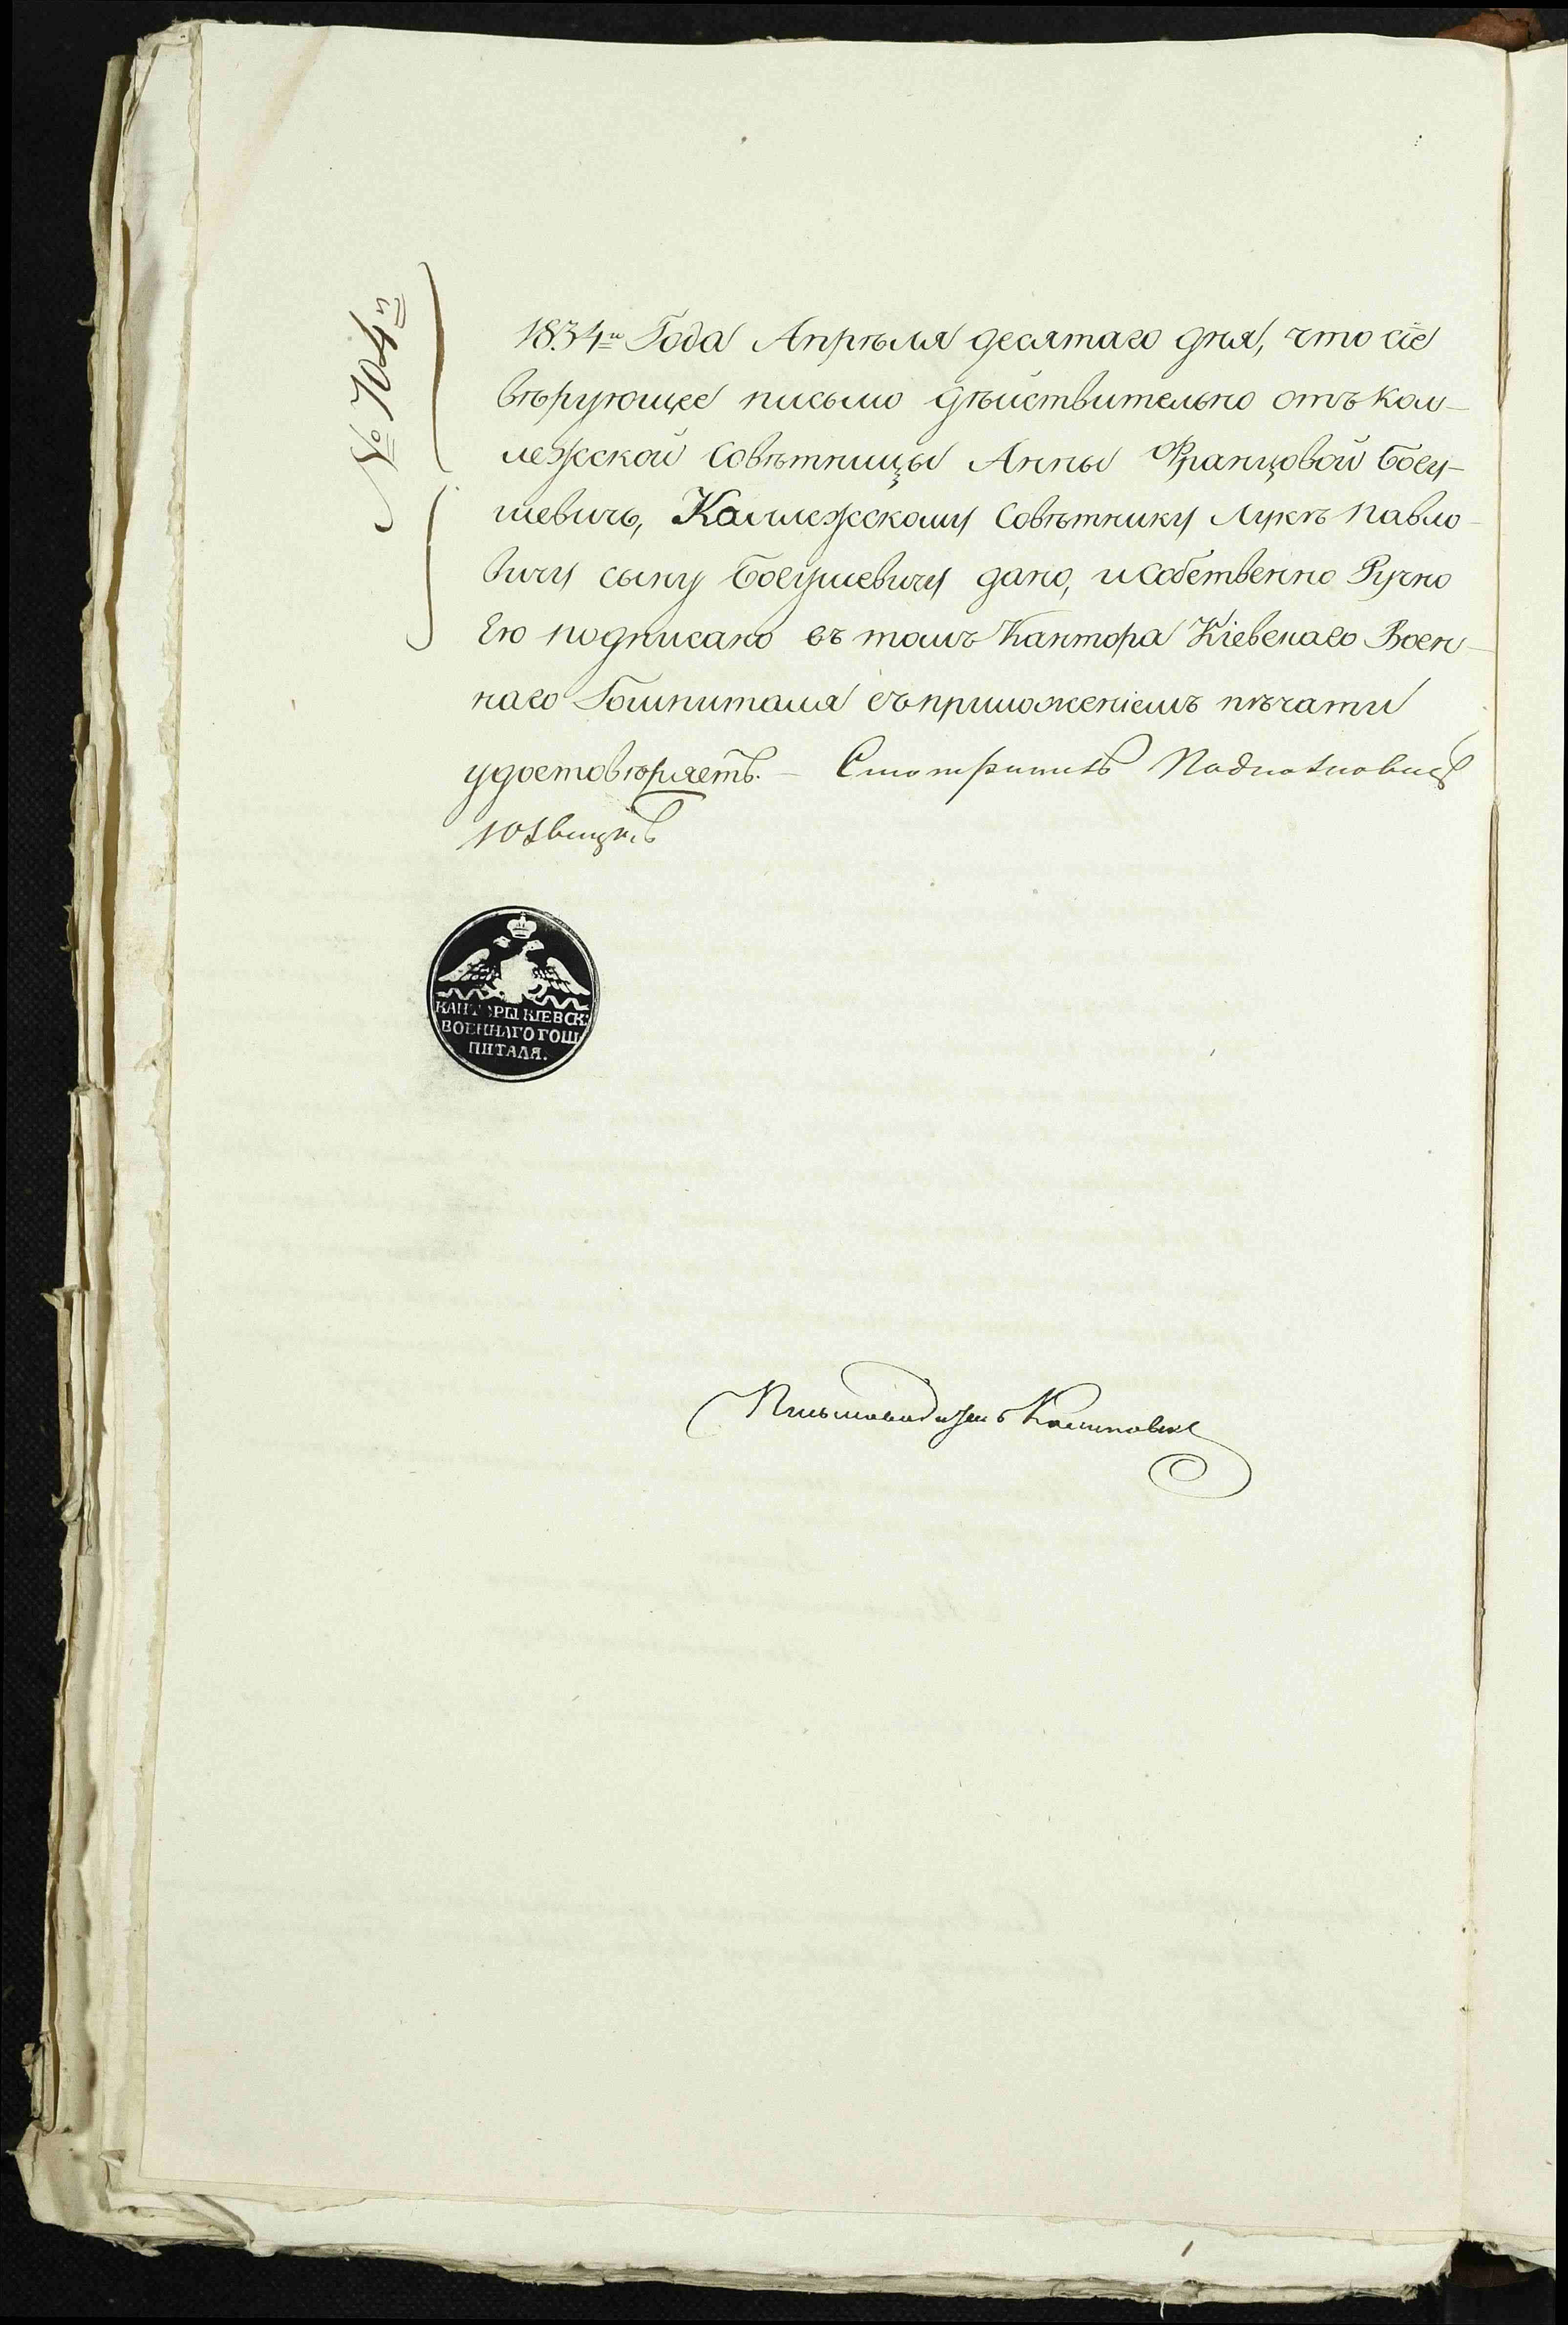 № 704й
1834го Года Апрѣля десятаго дня, что сіе
вѣрующее письмо дѣйствительно отъ Кол-
лежской Совѣтницы Анны Францовой Богу-
шевичь, Коллежскому Совѣтнику Лукѣ Павло-
вичу сыну Богушевичу дано, и собственно Ручно
Ею подписано въ томъ Кантора Кіевскаго Воен-
наго Гошпиталя съ приложеніемъ пѣчати
удостовѣряетъ. – Смотритель Подполковникъ
КАНТОРЫ КІЕВСК:
ВОЕННАГО ГОШ
ПИТАЛЯ.
Письмоводитель